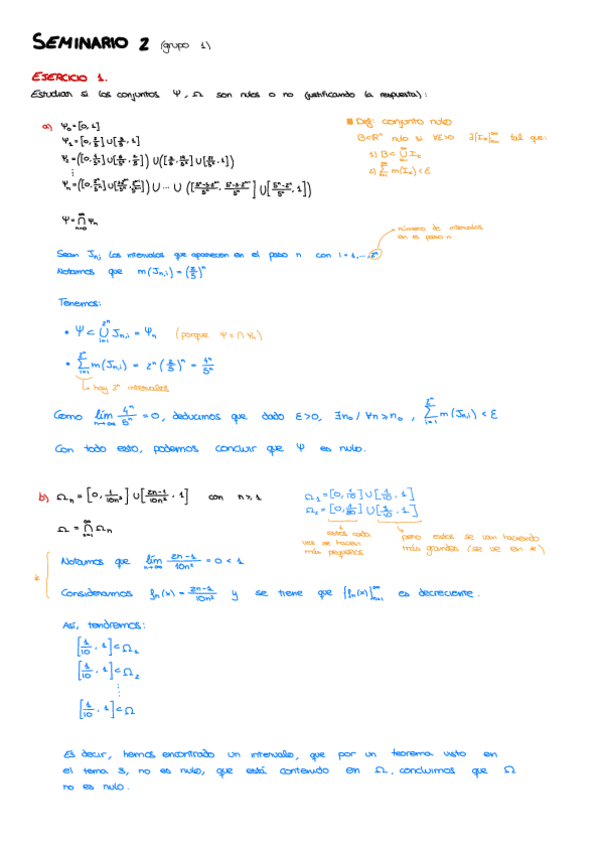 SEMINARIO 2 (grupo 1)
EJERCICIO 1.
Estudiar si los conjuntos Ψ, Ω son nulos o no (justificando la respuesta):
a) Ψ₀ = [0, 1]
■ Def: conjunto nulo
B⊂ℝⁿ nulo si ∀ε>0 ∃{Iₖ}ₖ₌₁^∞ tal que:
1) B ⊂ ∪ Iₖ
2) Σ m(Iₖ) < ε
Ψ = ∩ₙ₌₀^∞ Ψₙ
número de intervalos
en el paso n
Sean Jₙ,ᵢ los intervalos que aparecen en el paso n con i = 1, ... 2ⁿ
Notamos que m(Jₙ,ᵢ) = (2/5)ⁿ
Tenemos:
• Ψ ⊂ ∪ᵢ₌₁^2ⁿ Jₙ,ᵢ = Ψₙ (porque Ψ = ∩ Ψₙ)
• Σᵢ₌₁^2ⁿ m(Jₙ,ᵢ) = 2ⁿ (2/5)ⁿ = 4ⁿ/5ⁿ
hay 2ⁿ intervalos
Como lím n→∞ 4ⁿ/5ⁿ = 0, deducimos que dado ε>0, ∃n₀ / ∀n ≥ n₀, Σᵢ₌₁^2ⁿ m(Jₙ,ᵢ) < ε
Con todo esto, podemos concluir que Ψ es nulo.
b) Ωₙ = [0, 1/10n²] ∪ [2n-1/10n², 1] con n ≥ 1
Ω₁ = [0, 1/10] ∪ [1/10, 1]
Ω = ∩ₙ₌₁^∞ Ωₙ
estos cada
vez se hacen
más pequeños
pero estos se van haciendo
más grandes (se ve en *)
* Notamos que lím n→∞ 2n-1/10n² = 0 < 1
Consideramos fₙ(x) = 2n-1/10n² y se tiene que {fₙ(x)}ₙ₌₁^∞ es decreciente.
Así, tendremos:
[1/10, 1] ⊂ Ω₁
[1/10, 1] ⊂ Ω₂
⋮
[1/10, 1] ⊂ Ω
Es decir, hemos encontrado un intervalo, que por un teorema visto en
el tema 3, no es nulo, que está contenido en Ω, concluimos que Ω
no es nulo.